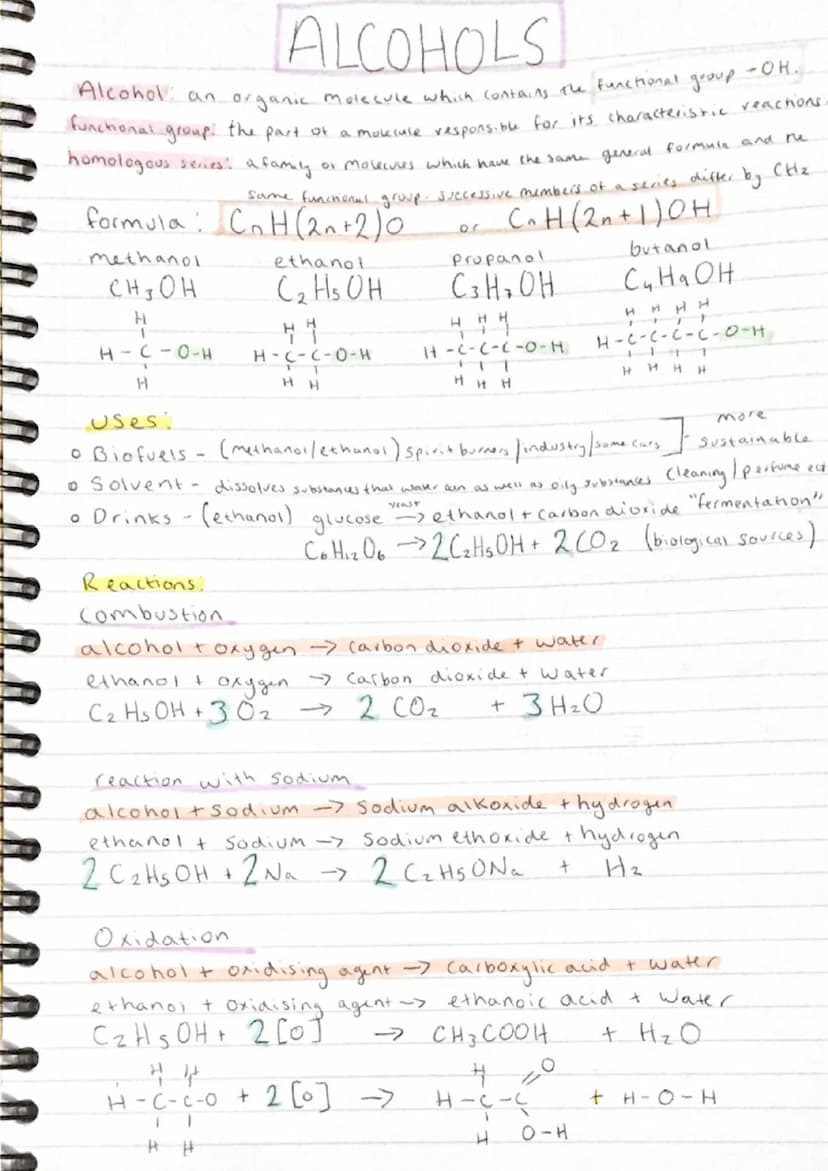 ALCOHOLS
Alcohol: an organic molecule which contains the functional group -OH.
functional group: the part of a molecule responsible for its characteristic reactions.
homologous series: a family of molecules which have the same general formula and the
same functional group. successive members of a series differ by CH2
formula: CnH(2n+2)O or CnH(2n+1)OH
methanol ethanol propanol butanol
CH3OH C2H5OH C3H7OH C4H9OH
H H H H H H H H H H
H-C-O-H H-C-C-O-H H-C-C-C-O-H H-C-C-C-C-O-H
H H H H H H H H H H
Uses:
Biofuels - (methanol/ethanol) spirit burners/industry/some cars ] more sustainable
Solvent - dissolves substances that water can as well as oily substances cleaning/perfume ect
Drinks - (ethanol) glucose yeast → ethanol + carbon dioxide "fermentation"
C6H12O6 → 2C2H5OH + 2CO2 (biological sources)
Reactions:
Combustion
alcohol + oxygen → carbon dioxide + water
ethanol + oxygen → carbon dioxide + water
C2H5OH + 3O2 → 2CO2 + 3H2O
reaction with sodium
alcohol + sodium → sodium alkoxide + hydrogen
ethanol + sodium → sodium ethoxide + hydrogen
2C2H5OH + 2Na → 2C2H5ONa + H2
Oxidation
alcohol + oxidising agent → carboxylic acid + water
ethanol + oxidising agent → ethanoic acid + water
C2H5OH + 2[O] → CH3COOH + H2O
H H H O
H-C-C-O + 2[O] → H-C-C + H-O-H
H H H O-H